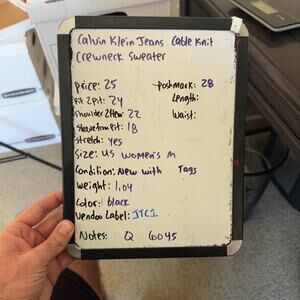 Calvin Klein Jeans Cable Knit
Crewneck Sweater
price: 25 poshmark: 28
Pit 2 pit: 24 Length:
Shoulder 2 Hem: 22 Waist:
Sleeve from pit: 18
stretch: yes
Size: US women's M
Condition: New with Tags
weight: 1.04
Color: black
Vendoo Label: JTC1
Notes: Q 6045